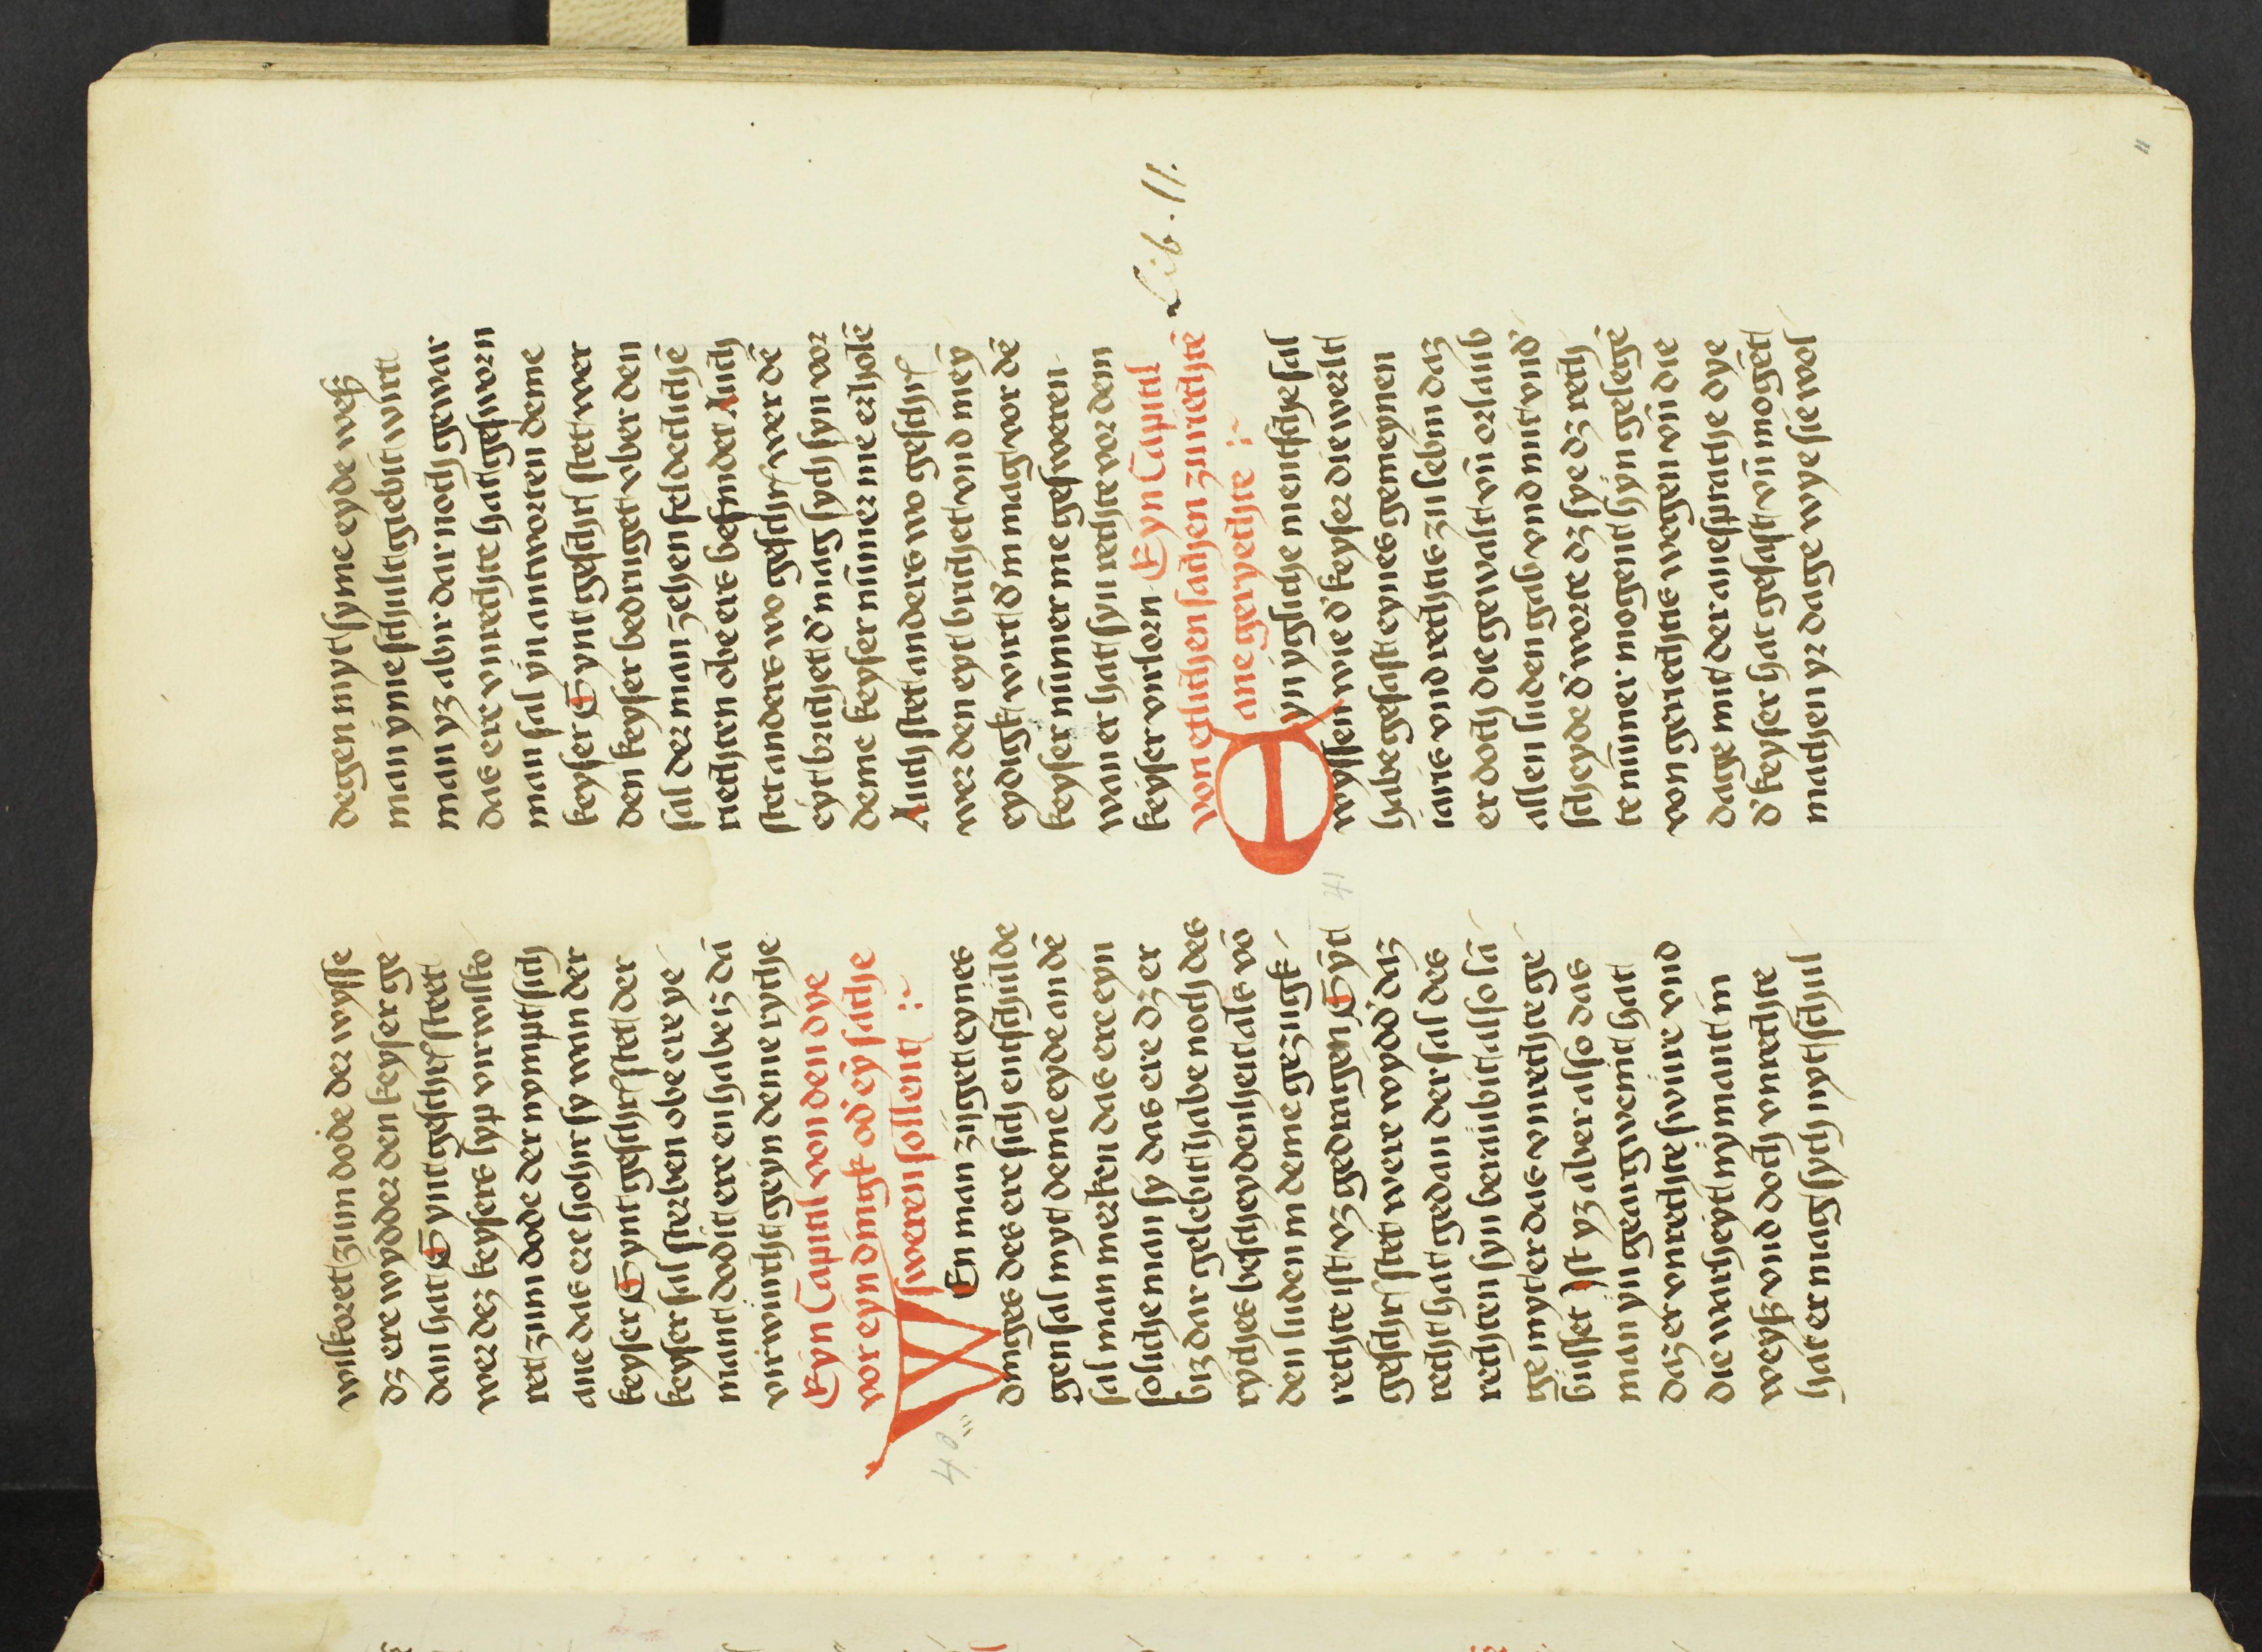 wilkoret zum dode der wysse
dz ere wydder den keyser ge
dan hat Synt geschrẜ stett
wer dez keysers lyp virwilko
ret zum dode der nympt sich
ane das ere holnr sy wan der
keyser Synt geschrẜ stet der
keyser sal sterben obe ere ye
mant dodit ere en habe iz dā
virwircht geyn deme ryche
Eyn Capittil von den dye
vor eyn dingk od' eȳ sache
sweren sollent :~
WEn man zijget eynes
dinges des ere sich entschulde
gen sal myt deme eyde an dē
sal man merken das ere eyn
soliche man sy das ere dz er
biz dar gelebit habe noch des
ryches bescheydenheit als vō
den luden in deme gezugk
rechte ist vz gedragen Syt
geschrẜ stet were wydd' daz
recht hat gedan der sal des
rechten syn beraubit also lā
ge myt er das vnrechte ge
busset Ist yz aber also das
man yn geargwenit hat
daz er vnrechte swure vnd
die warheyt nymant in
weyß vnd doch vnrechte
hat er mag sych myt schul
degen myt syme eyde weß
man yme schult giebit wirt
man yz abir dar noch gewar
das ere vnrechte hat gesworn
man sal yn antworten deme
keyser Synt geschrẜ stet wer
den keyser bedruget vber den
sal der man zehen feldecliche
riechten obe ers befinder Auch
stet anders wo geschrẜ wer dē
eyt brichet d' mag sych syn vor
deme keyser nūmer me erholē
Auch stet anders wo geschrẜ
wer den eyt brichet vnd mey
eydigk wirt d' in mag vor dē
keyser nūmer me gesweren
wan er hat syn rechte vor dem
keyser virlorn Eyn Capittil
von etlichen sachen zu rechtē
ane geryechte :~
Lib. II.
Eyn yglich mentsche sal
wyssen wie d' keyser die werlt
habe gesast eynes gemeynen
iaris vnd rechtis zu lebin daz
er doch die gewalt vn̄ orlaub
allen luden gab vnd mit vnd'
scheyde d' worte dz sye dz rech
te nūmer mogent hyn gelegē
von geriechtis wegen vn̄ die
dage mit der anesprache dye
d' keyser hat gesast vn̄ mogēt
machen yr dage wye sie wol
40
41
11